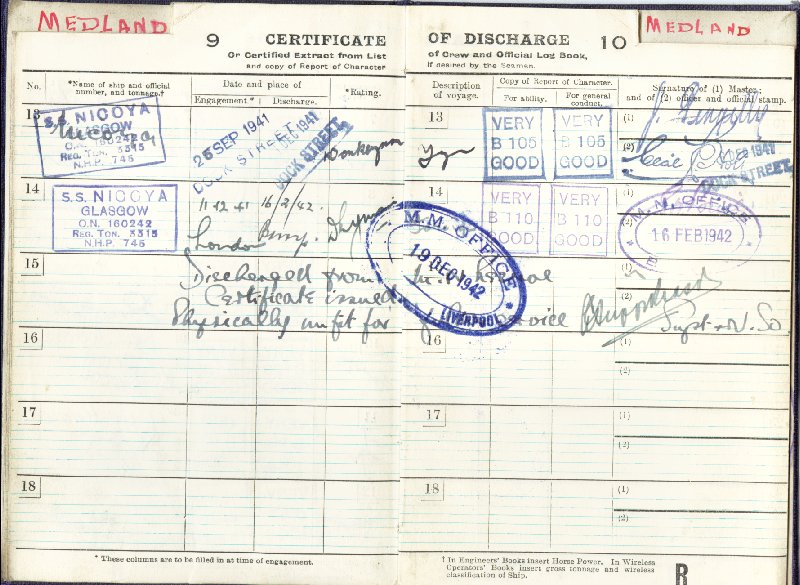 MEDLAND
MEDLAND
9 CERTIFICATE OF DISCHARGE 10
Or Certified Extract from List of Crew and Official Log Book,
and copy of Report of Character if desired by the Seaman.
No.
*Name of ship and official number, and tonnage.†
Date and place of
Engagement* Discharge.
*Rating.
Description of voyage.
Copy of Report of Character.
For ability. For general conduct.
Signature of (1) Master; and of (2) officer and official stamp.
13
S.S. NICOYA
GLASGOW
O.N. 160242
REG. TON. 3315
N.H.P. 745
25 SEP 1941
DOCK STREET
DEC 1941
DOCK STREET.
Donkeyman
13
VERY B 105 GOOD
VERY B 105 GOOD
(1)
(2)
DEC 1941
DOCK STREET.
14
S.S. NICOYA
GLASGOW
O.N. 160242
REG. TON. 3315
N.H.P. 745
11 12 41 16/2/42.
London
14
VERY B 110 GOOD
VERY B 110 GOOD
(1)
(2)
M.M. OFFICE
16 FEB 1942
M.M. OFFICE
19 DEC 1942
LIVERPOOL
15
Discharged from
Certificate issued
Physically unfit for service
(1)
(2)
Supt
16
16
(1)
(2)
17
17
(1)
(2)
18
18
(1)
(2)
* These columns are to be filled in at time of engagement.
† In Engineers' Books insert Horse Power. In Wireless
Operators' Books insert gross tonnage and wireless
classification of Ship.
R